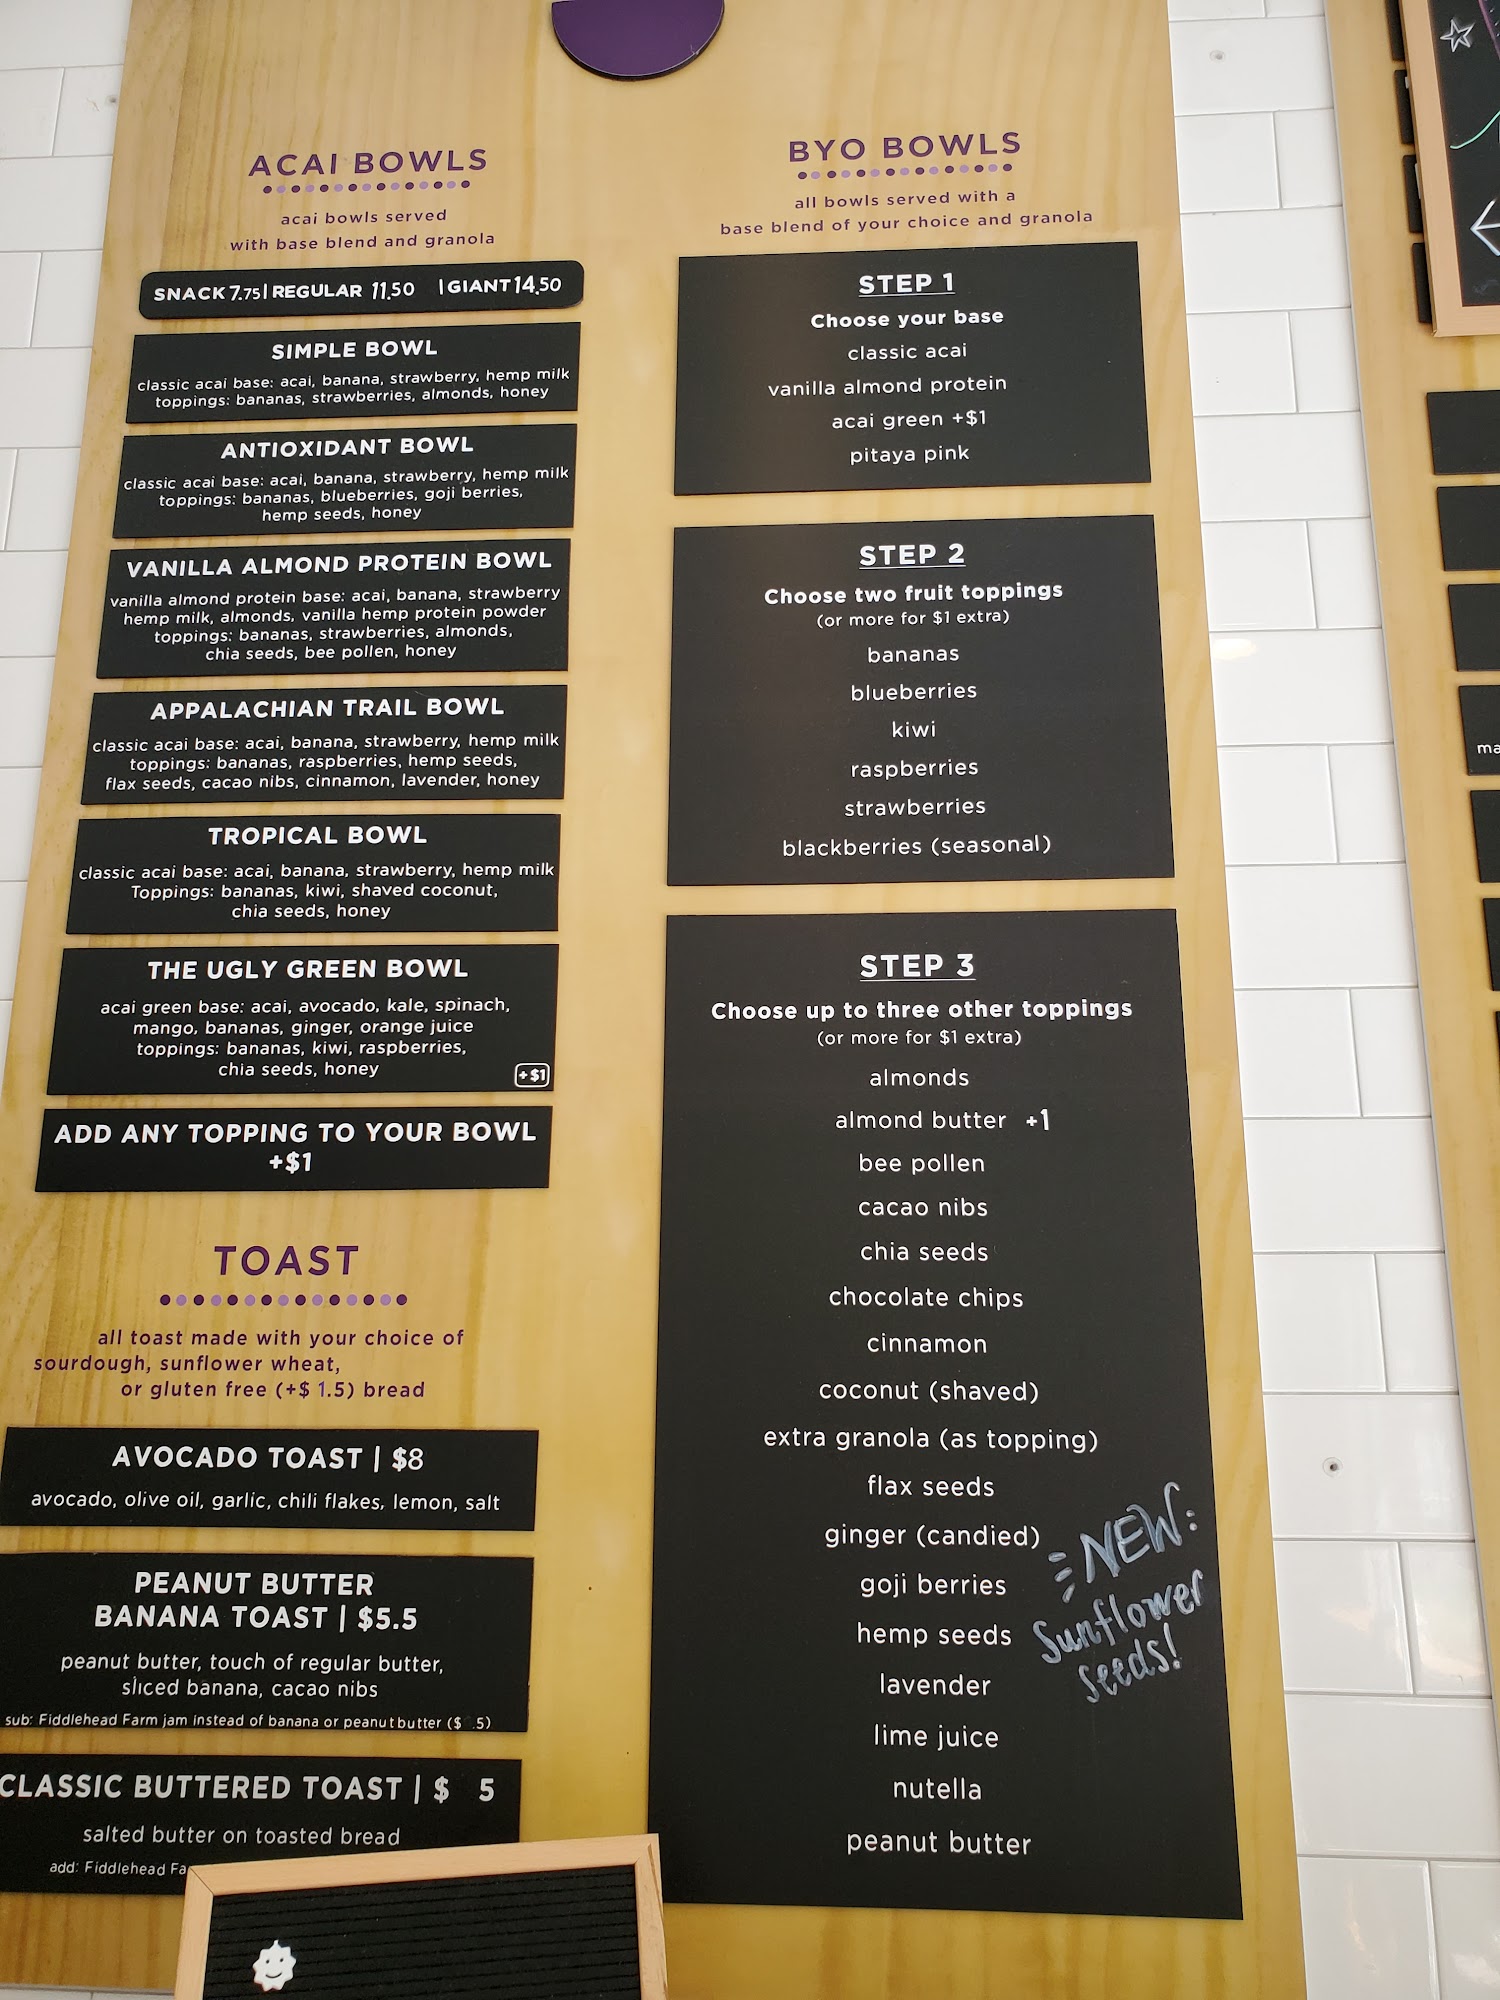 ACAI BOWLS
acai bowls served
with base blend and granola
SNACK 7.75 | REGULAR 11.50 | GIANT 14.50
SIMPLE BOWL
classic acai base: acai, banana, strawberry, hemp milk
toppings: bananas, strawberries, almonds, honey
ANTIOXIDANT BOWL
classic acai base: acai, banana, strawberry, hemp milk
toppings: bananas, blueberries, goji berries,
hemp seeds, honey
VANILLA ALMOND PROTEIN BOWL
vanilla almond protein base: acai, banana, strawberry
hemp milk, almonds, vanilla hemp protein powder
toppings: bananas, strawberries, almonds,
chia seeds, bee pollen, honey
APPALACHIAN TRAIL BOWL
classic acai base: acai, banana, strawberry, hemp milk
toppings: bananas, raspberries, hemp seeds,
flax seeds, cacao nibs, cinnamon, lavender, honey
TROPICAL BOWL
classic acai base: acai, banana, strawberry, hemp milk
Toppings: bananas, kiwi, shaved coconut,
chia seeds, honey
THE UGLY GREEN BOWL
acai green base: acai, avocado, kale, spinach,
mango, bananas, ginger, orange juice
toppings: bananas, kiwi, raspberries,
chia seeds, honey
+$1
ADD ANY TOPPING TO YOUR BOWL
+$1
TOAST
all toast made with your choice of
sourdough, sunflower wheat,
or gluten free (+$ 1.5) bread
AVOCADO TOAST | $8
avocado, olive oil, garlic, chili flakes, lemon, salt
PEANUT BUTTER
BANANA TOAST | $5.5
peanut butter, touch of regular butter,
sliced banana, cacao nibs
sub: Fiddlehead Farm jam instead of banana or peanut butter ($ .5)
CLASSIC BUTTERED TOAST | $ 5
salted butter on toasted bread
add: Fiddlehead Fa
BYO BOWLS
all bowls served with a
base blend of your choice and granola
STEP 1
Choose your base
classic acai
vanilla almond protein
acai green +$1
pitaya pink
STEP 2
Choose two fruit toppings
(or more for $1 extra)
bananas
blueberries
kiwi
raspberries
strawberries
blackberries (seasonal)
STEP 3
Choose up to three other toppings
(or more for $1 extra)
almonds
almond butter +1
bee pollen
cacao nibs
chia seeds
chocolate chips
cinnamon
coconut (shaved)
extra granola (as topping)
flax seeds
ginger (candied)
goji berries
hemp seeds
lavender
lime juice
nutella
peanut butter
NEW:
Sunflower
seeds!
ma